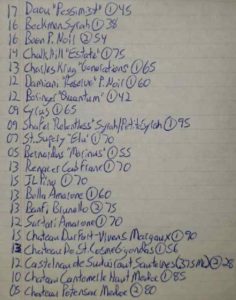 17 Daou "Pessimist" ① 45
16 Beckmen Syrah ① 38
16 Boen P. Noil ② 54
14 Chalk Hill "Estate" ① 75
13 Charles King "Generations" ① 65
12 Damiani "Reserve" P. Noil ① 60
12 Beringer "Quantum" ① 42
09 Cyrus ① 65
09 Shafer "Relentless" Syrah/Petit Syrah ① 95
07 St. Supery "Elu" ① 70
05 Bernardus "Marinus" ① 55
13 Cab Franc ① 70
15 ① 70
13 Bolla Amarone ① 60
13 Banfi Brunello ② 75
12 Sartori Amarone ① 70
15 Chateau Durfort-Vivens Margaux ① 90
Chateau De St. Cosme Gigondas ① 56
12 Castelnau de Suduiraut Sauternes (375ML) ② 28
10 Chateau Cantemerle Haut Medoc ① 85
05 Chateau Potensac Medoc ② 80